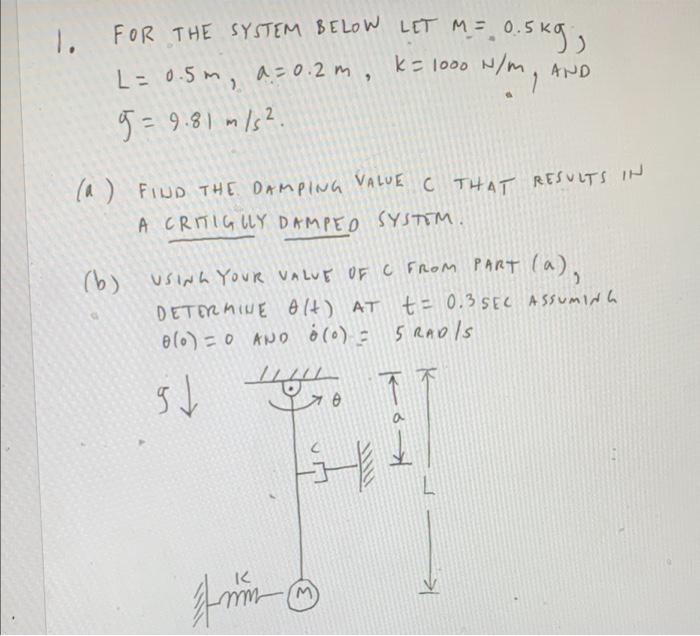 1. FOR THE SYSTEM BELOW LET M = 0.5 kg,
L = 0.5 m, a = 0.2 m, k = 1000 N/m, AND
g = 9.81 m/s².
(a) FIND THE DAMPING VALUE C THAT RESULTS IN
A CRITICALLY DAMPED SYSTEM.
(b) USING YOUR VALUE OF C FROM PART (a),
DETERMINE θ(t) AT t = 0.3 SEC ASSUMING
θ(0) = 0 AND θ̇(0) = 5 RAD/S
g↓
θ
a
C
L
K
M